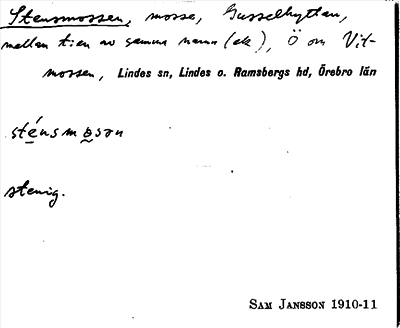 Stensmossen, mosse, Gusselhyttan,
mellan t:en av samma namn (ek), Ö om Vit-
mossen, Lindes sn, Lindes o. Ramsbergs hd, Örebro län
sténsmo̬sən
stenig.
SAM JANSSON 1910-11